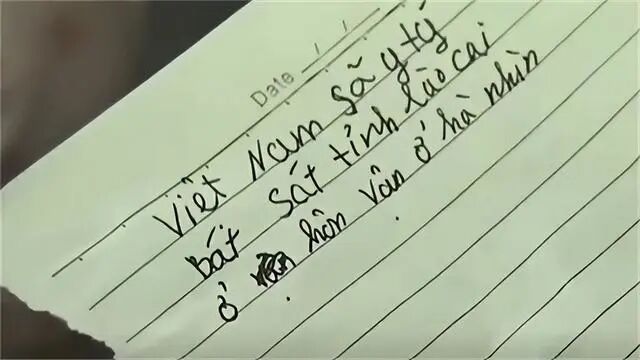 Date / /
Việt Nam sã y tý
bát sát tỉnh lào cai
ở hôn vân ở hà nhìn